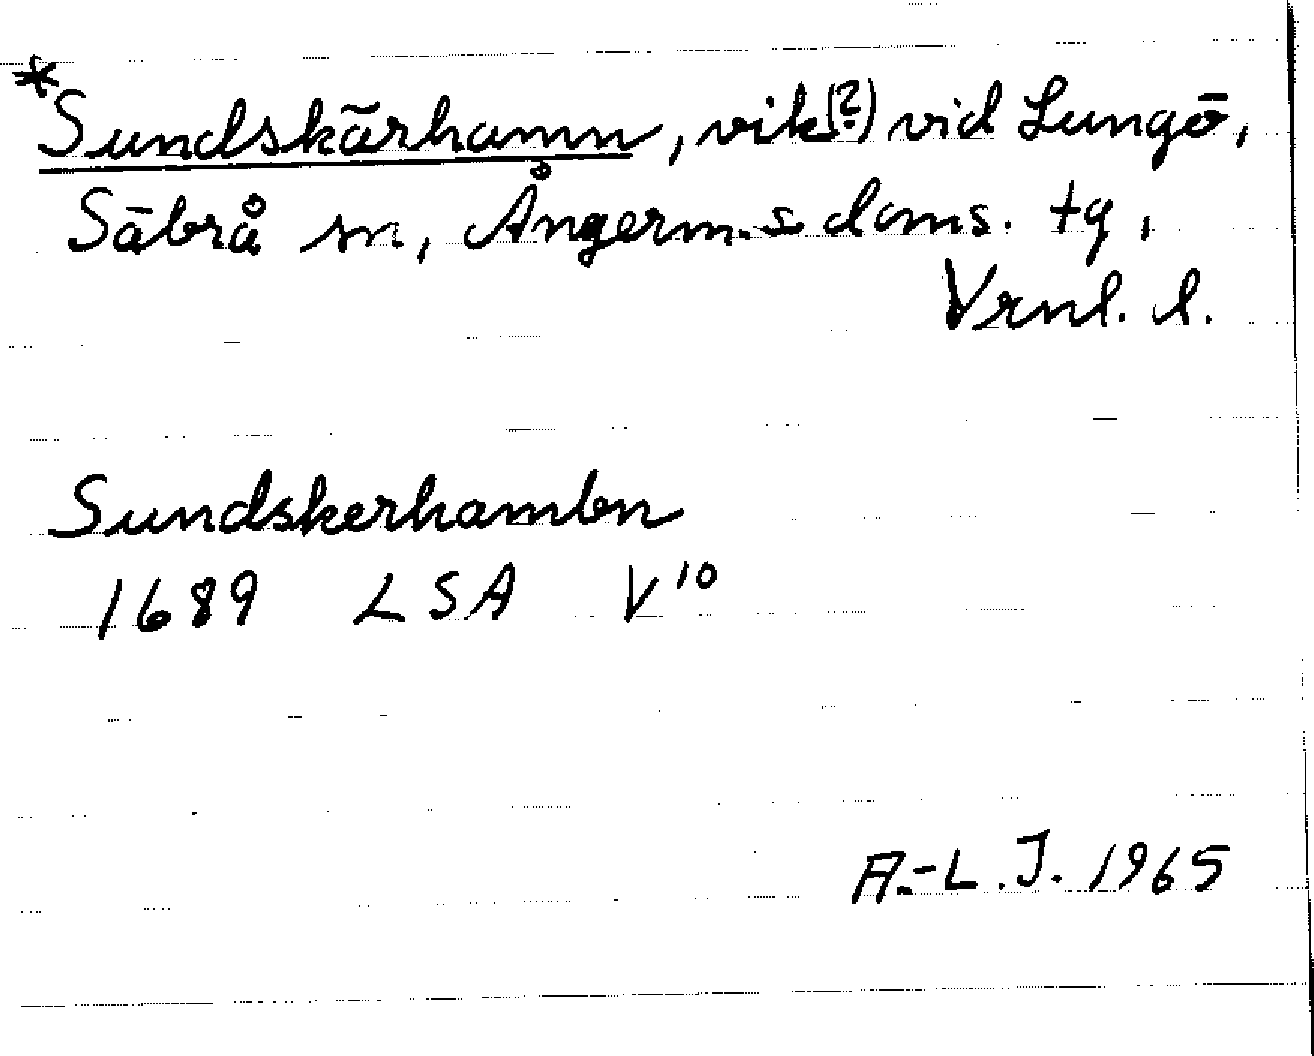 *Sundskärhamn, vik(?) vid Lungö,
Säbrå sn, Ångerm.s doms. tg,
Vrnl. l.
Sundskerhambn
1689 LSA V¹⁰
A.-L. J. 1965